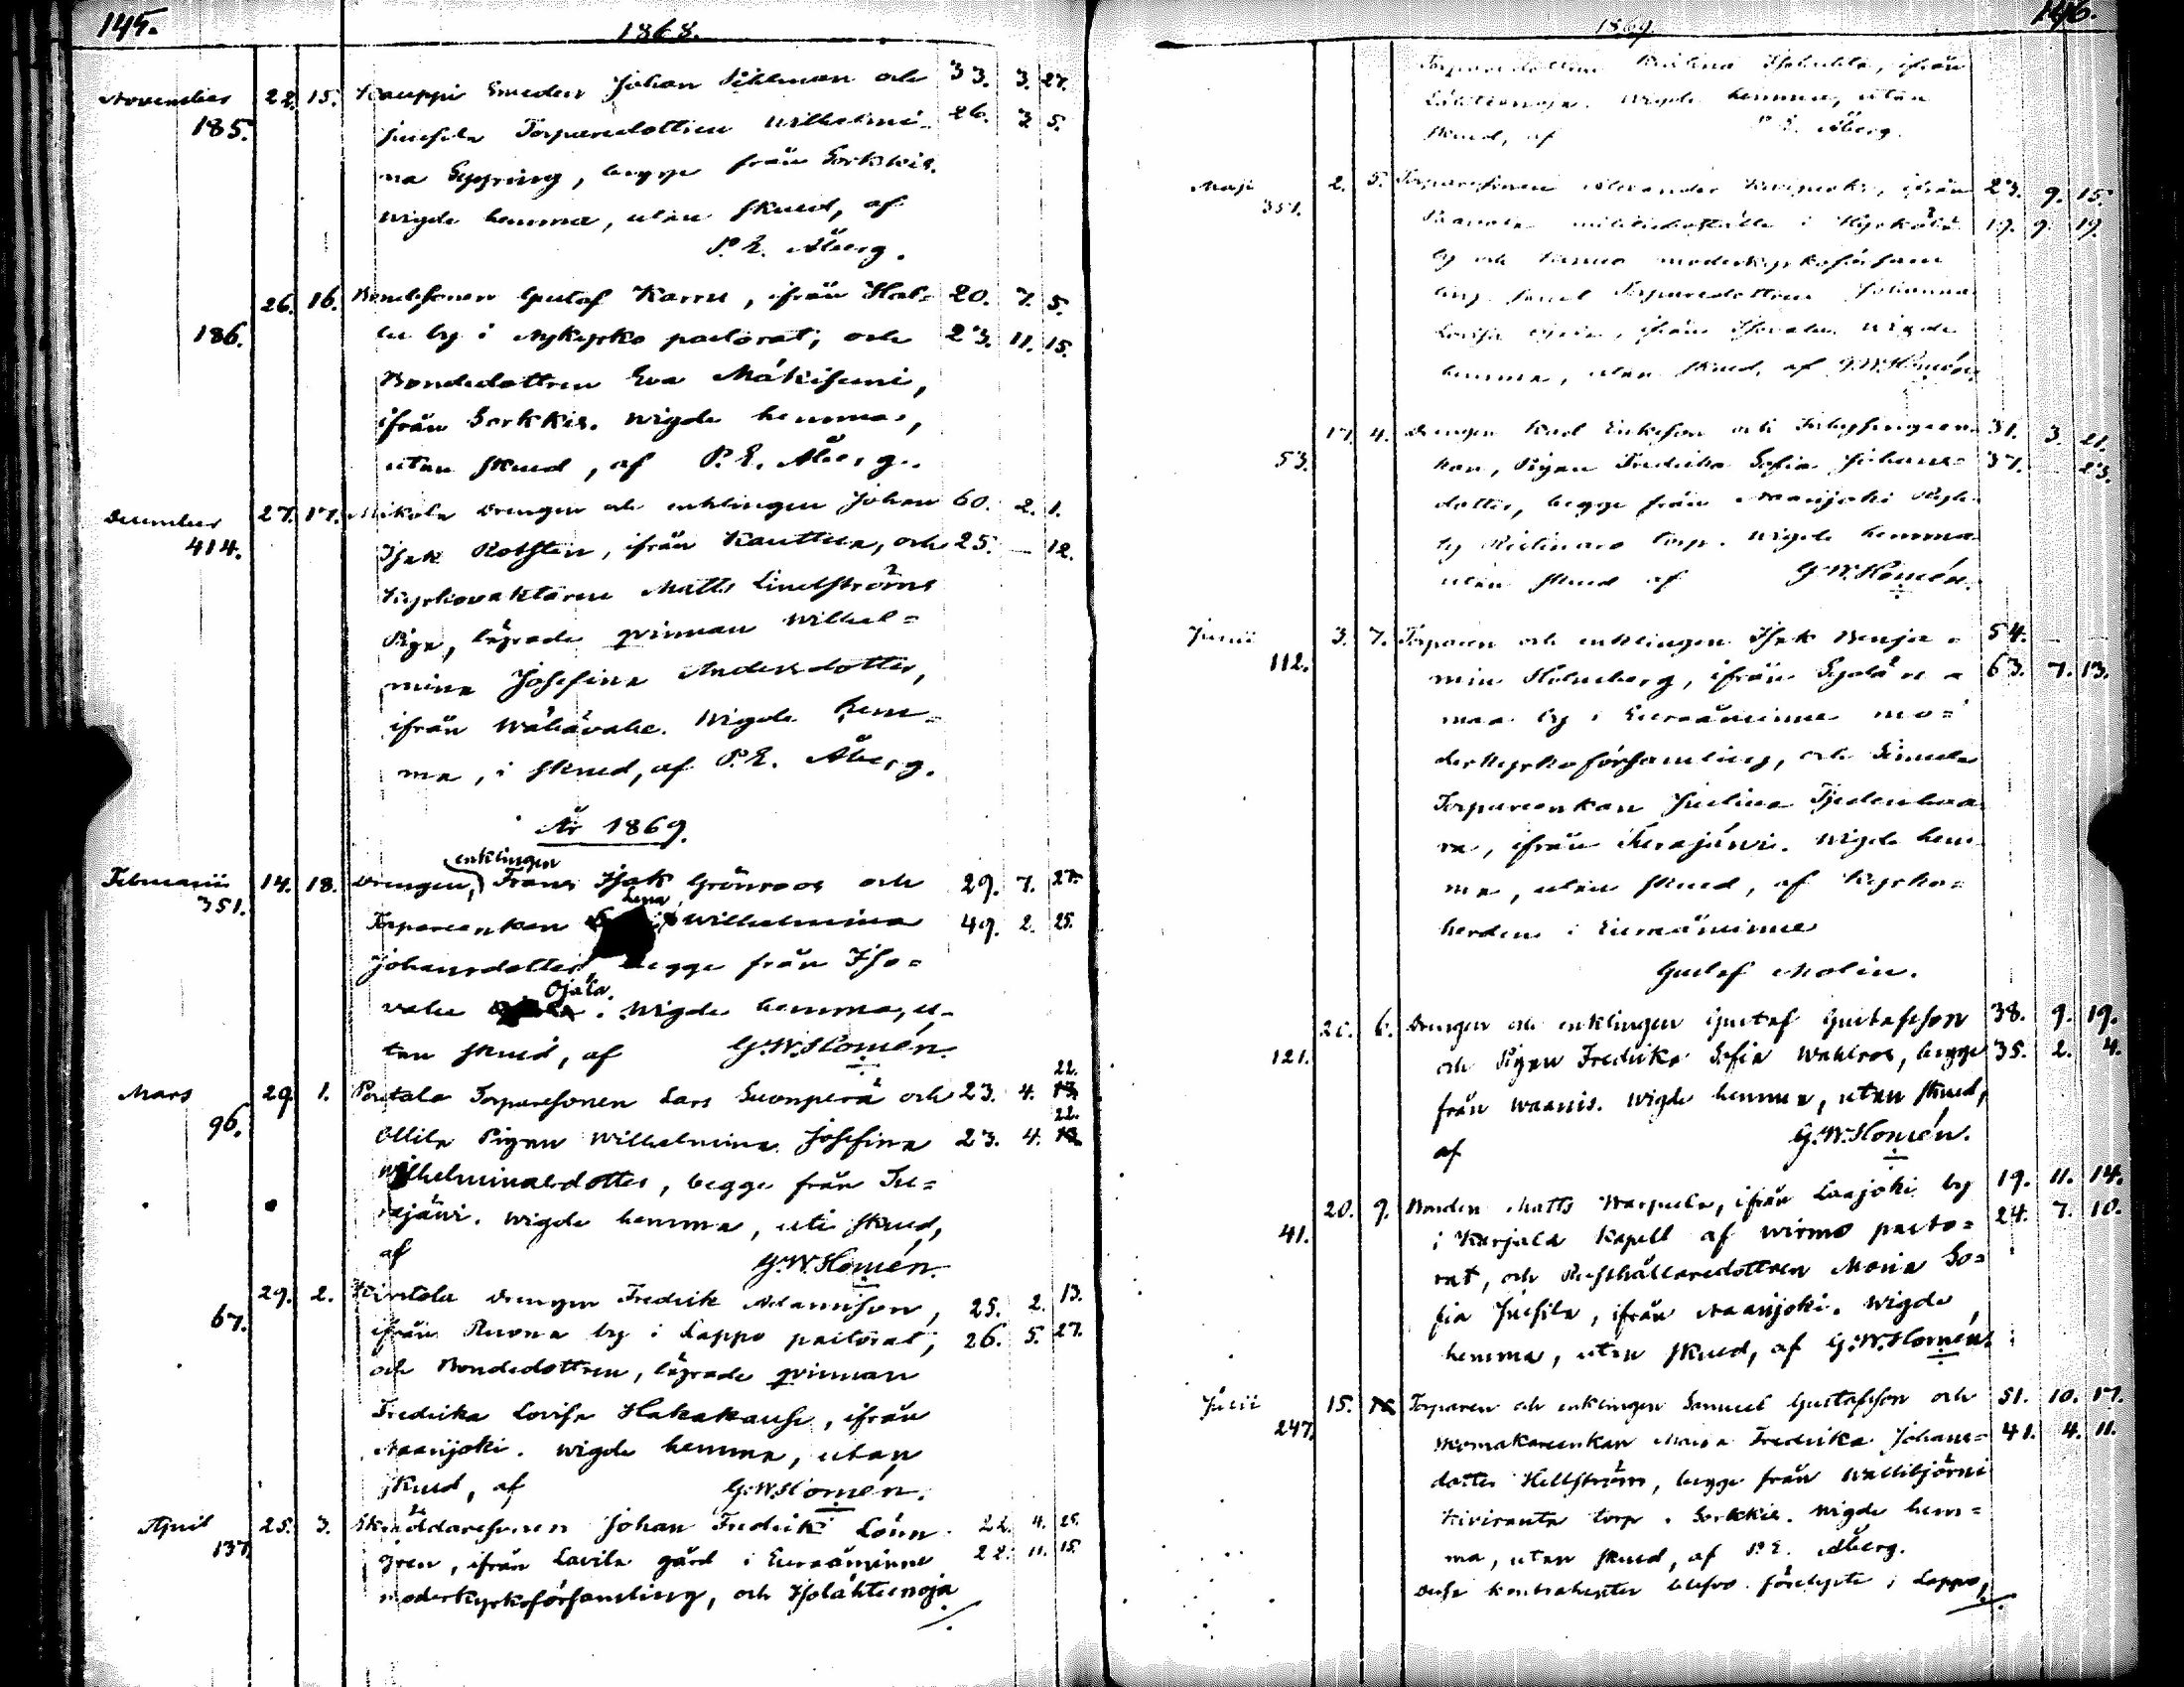 145.
1868.
November 22. 15. Kauppi Smeden Johan Sihlman och 33. 3. 27.
185. Juusila Torparedottren Wilhelmi- 26. 3 5.
na Seppring, begge från Sorkkis.
Wigde hemma, utan skrud, af
P. E. Åberg.
26. 16. Bondesonen Gustaf Karru, ifrån Hal- 20. 7. 5.
186. lu by i Nykyrko pastorat, och 23. 11. 15.
Bondedottren Eva Mäkisuni,
ifrån Sorkkis. Wigde hemma,
utan skrud, af P. E. Åberg.
December 27. 17. Mikola Drengen och enklingen Johan 60. 2. 1.
414. Isak Rotsten, ifrån Kauttua, och 25. — 12.
Kyrkovaktaren Matts Lindströms
Piga, lägrade qvinnan Wilhel=
mina Josefina Andersdotter,
ifrån Wähävahe. Wigde hem-
ma, i skrud, af P. E. Åberg.
År 1869.
enklingen
Februarii 14. 18. Drengen, Frans Isak Grönroos och 29. 7. 27.
351. Lena
Torpareenkan Wilhelmina 49. 2. 25.
Johansdotter, begge från Iso=
Ojala.
vahe . Wigde hemma, u-
tan skrud, af G. W. Homén.
22.
Mars 29. 1. Pentala Torparesonen Lars Suonperä och 23. 4. 13
22.
96. Ollila Pigan Wilhelmina Josefina 23. 4. 13
Wilhelminasdotter, begge från Tu=
rajärvi. Wigde hemma, uti skrud,
af G. W. Homén.
29. 2. Kintola Drengen Fredrik Adamsson, 25. 2. 13.
67. ifrån Ruona by i Lappo pastorat, 26. 5. 27.
och Bondedottren, lägrade qvinnan
Fredrika Lovisa Hakakausi, ifrån
Naarijoki. Wigde hemma, utan
skrud, af G. W. Homén.
April 25. 3. Skräddaresonen Johan Fredrik Lönn- 22. 4. 25.
137. gren, ifrån Lavila gård i Euraåminne 22. 11. 15.
moderkyrkoförsamling, och Isolähteenoja
146.
1869.
Torparedottren ifrån
Lähteenoja. Wigde hemma, utan
skrud, af P. E. Åberg.
Maji 2. 5. Torparesonen Alexander ifrån 23. 9. 15.
351. militieboställe i 19. 9. 19.
by och moderkyrkoförsam
ling, samt Torparedottren Johanna
Lovisa ifrån Isovahe. Wigde
hemma, utan skrud, af G. W. Homén.
17. 4. Drengen Karl Eriksson och Inhysingeen- 31. 3. 21.
53. kan, Pigan Fredrika Sofia Johans- 37. — 23.
dotter, begge från Naarijoki
by torp. Wigde hemma
utan skrud af G. W. Homén.
Junii 3. 7. Torparen och enklingen Isak Benja= 54. — —
112. min Holmberg, ifrån 63. 7. 13.
maa by i Euraåminne mo=
derkyrkoförsamling, och Simula
Torpareenkan Justina
ra, ifrån Turajärvi. Wigde hem
ma, utan skrud, af Kyrko=
herden i Euraåminne
Gustaf Molin.
20. 6. Drengen och enklingen Gustaf Gustafsson 38. 9. 19.
121. och Pigan Fredrika Sofia Wahlros, begge 35. 2. 4.
från Waanis. Wigde hemma, utan skrud,
af G. W. Homén.
20. 9. Bonden Matts Warpula, ifrån Laajoki by 19. 11. 14.
41. i Karjala Kapell af Wirmo pasto= 24. 7. 10.
rat, och Rusthållaredottren Maria So=
fia Juusila, ifrån Naarijoki. Wigde
hemma, utan skrud, af G. W. Homén.
Julii 15. Torparen och enklingen Samuel Gustafsson och 51. 10. 17.
247. Skomakareenkan Maria Fredrika Johans= 41. 4. 11.
dotter Hellström, begge från Wallibjörni
Kiviranta torp. Sorkkis. Wigde hem=
ma, utan skrud, af P. E. Åberg.
Dessa kontrahenter blefvo förelyste i Lappo,